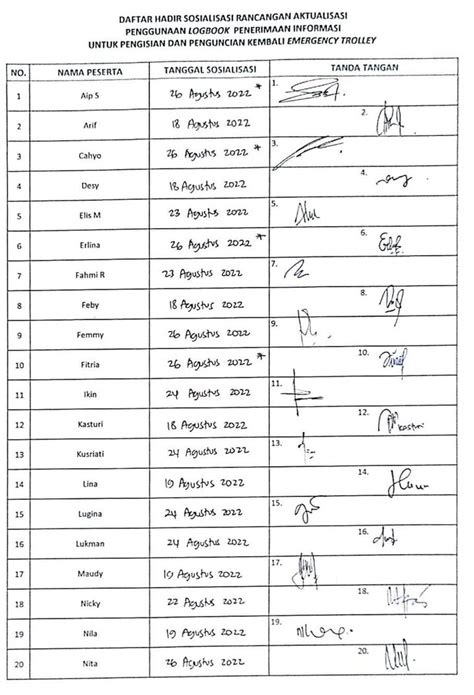 DAFTAR HADIR SOSIALISASI RANCANGAN AKTUALISASI
PENGGUNAAN LOGBOOK PENERIMAAN INFORMASI
UNTUK PENGISIAN DAN PENGUNCIAN KEMBALI EMERGENCY TROLLEY
NO. NAMA PESERTA TANGGAL SOSIALISASI TANDA TANGAN
1 Aip S 26 Agustus 2022 * 1.
2 Arif 18 Agustus 2022 2.
3 Cahyo 26 Agustus 2022 * 3.
4 Desy 18 Agustus 2022 4.
5 Elis M 23 Agustus 2022 5.
6 Erlina 26 Agustus 2022 * 6.
7 Fahmi R 23 Agustus 2022 7.
8 Feby 18 Agustus 2022 8.
9 Femmy 26 Agustus 2022 9.
10 Fitria 26 Agustus 2022 * 10.
11 Ikin 24 Agustus 2022 11.
12 Kasturi 18 Agustus 2022 12. kasturi
13 Kusriati 24 Agustus 2022 13.
14 Lina 19 Agustus 2022 14.
15 Lugina 24 Agustus 2022 15.
16 Lukman 24 Agustus 2022 16.
17 Maudy 19 Agustus 2022 17.
18 Nicky 22 Agustus 2022 18.
19 Nila 19 Agustus 2022 19.
20 Nita 26 Agustus 2022 20.